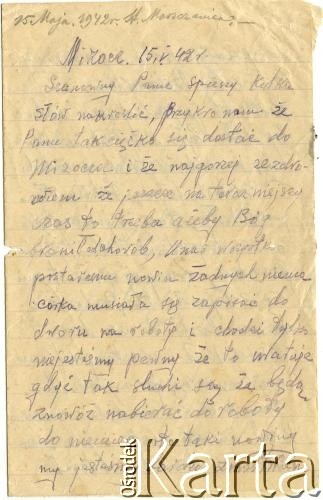 15 Maja. 1942 r. H. Marszaniec
Mizocz. 15.V 42 r
Szanowny Panie spieszę kilka
słów nakreślić, przykro nam że
Panu tak ciężko się dostać do
Mizocza i że najgorzej ze zdro-
wiem że jeszcze na teraźniejszy
czas to trzeba ażeby Bóg
bronił chorób, U nas wszystko
po staremu nowin żadnych niema
córka musiała się zapisać do
dworu na roboty i chodzi tylko
niejesteśmy pewny że to uratuje
gdyż tak słuchi są że będą
znowóż nabierać do roboty
do niemiec oto taki nowiny
my jesteśmy
ośrodek
Karta